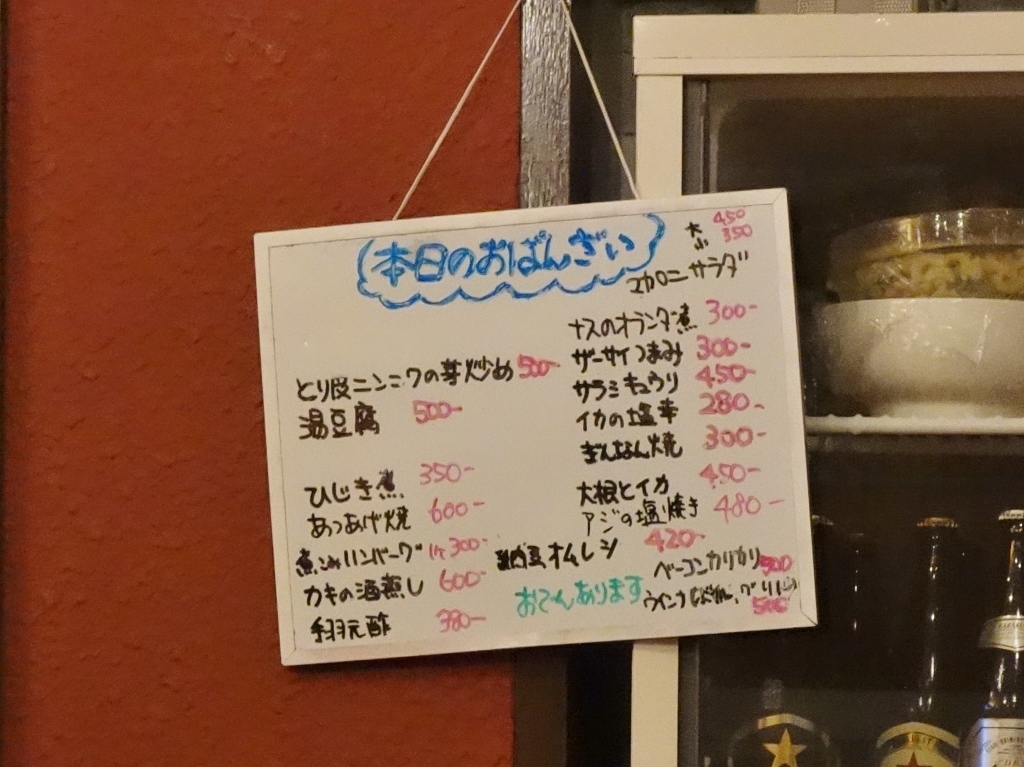 本日のおばんざい
大 450
小 350
マカロニサラダ
ナスのオランダ煮 300-
ザーサイつまみ 300-
サラミキュウリ 450-
イカの塩辛 280-
ぎんなん焼 300-
大根とイカ 450-
アジの塩焼き 480-
納豆オムレツ 420-
ベーコンカリカリ 500
ウインナ
500
とり皮ニンニクの芽炒め 500-
湯豆腐 500-
ひじき煮 350-
あつあげ焼 600-
煮込みハンバーグ 1ケ300-
カキの酒蒸し 600-
手羽元酢 380-
おでんあります